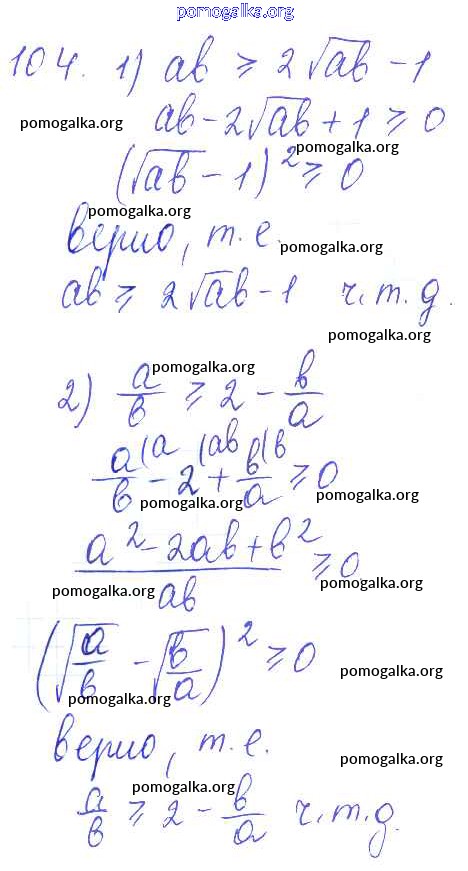 pomogalka.org
104. 1) ab ⩾ 2√ab - 1
ab - 2√ab + 1 ⩾ 0
pomogalka.org
pomogalka.org
(√ab - 1)² ⩾ 0
pomogalka.org
верно, т.е.
pomogalka.org
ab ⩾ 2√ab - 1 ч.т.д.
pomogalka.org
pomogalka.org
2) a/b ⩾ 2 - b/a
a(a/b - 2(ab + b(b/a ⩾ 0
pomogalka.org pomogalka.org
(a² - 2ab + b²)/ab ⩾ 0
pomogalka.org pomogalka.org
(√a/b - √b/a)² ⩾ 0
pomogalka.org
pomogalka.org
верно, т.е.
pomogalka.org
pomogalka.org
a/b ⩾ 2 - b/a ч.т.д.